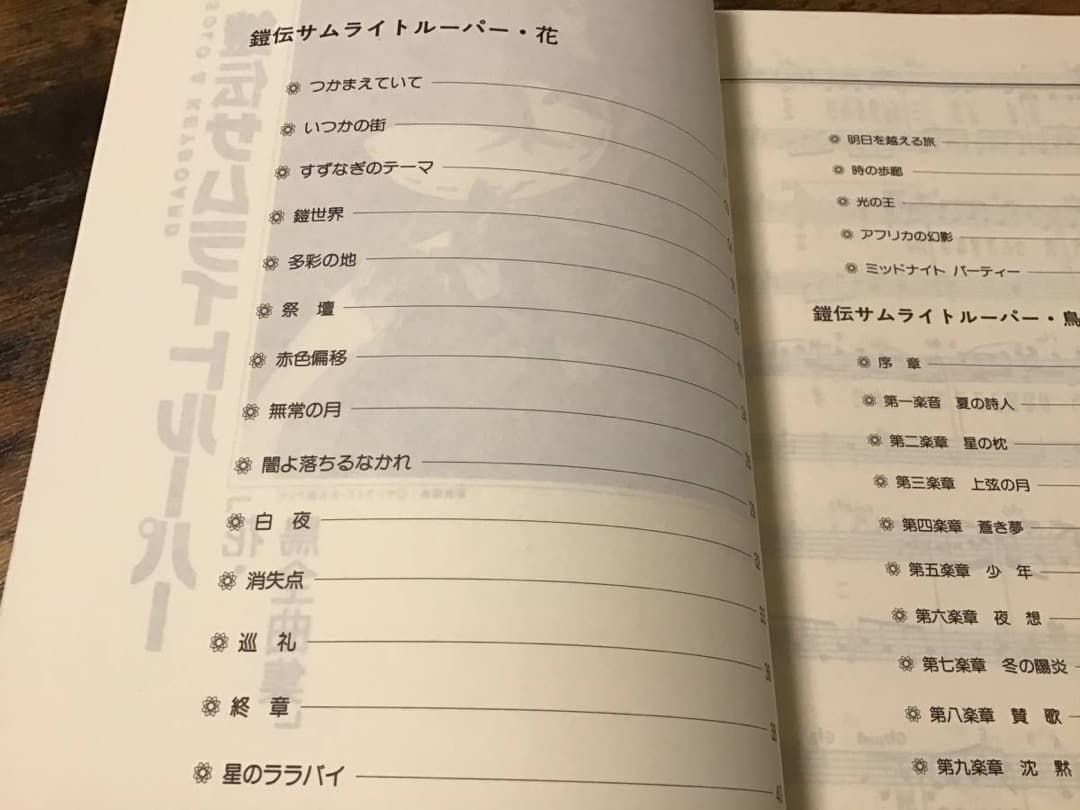 鎧伝サムライトルーパー・花
つかまえていて
いつかの街
すずなぎのテーマ
鎧世界
多彩の地
祭　壇
赤色偏移
無常の月
闇よ落ちるなかれ
白　夜
消失点
巡　礼
終　章
星のララバイ
明日を越える旅
時の歩廊
光の王
アフリカの幻影
ミッドナイト パーティー
鎧伝サムライトルーパー・鳥
序　章
第一楽音　夏の詩人
第二楽章　星の枕
第三楽章　上弦の月
第四楽章　蒼き夢
第五楽章　少　年
第六楽章　夜　想
第七楽章　冬の陽炎
第八楽章　賛　歌
第九楽章　沈　黙